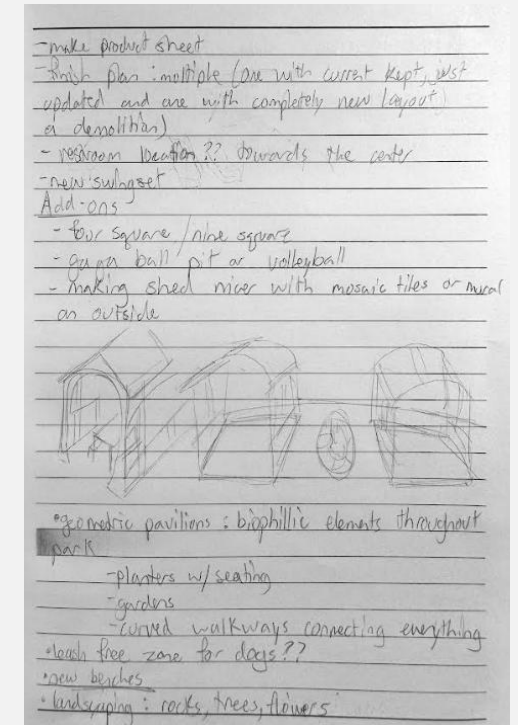 - make product sheet
- finish plan : multiple (one with current kept, just
updated and one with completely new layout)
a demolition)
- restroom location?? towards the center
- new swingset
Add-ons
- four square / nine square
- gaga ball pit or volleyball
- making shed nicer with mosaic tiles or mural
on outside
• geometric pavilions : biophillic elements throughout
park
- planters w/ seating
- gardens
- curved walkways connecting everything
• leash free zone for dogs??
• new benches
• landscaping : rocks, trees, flowers